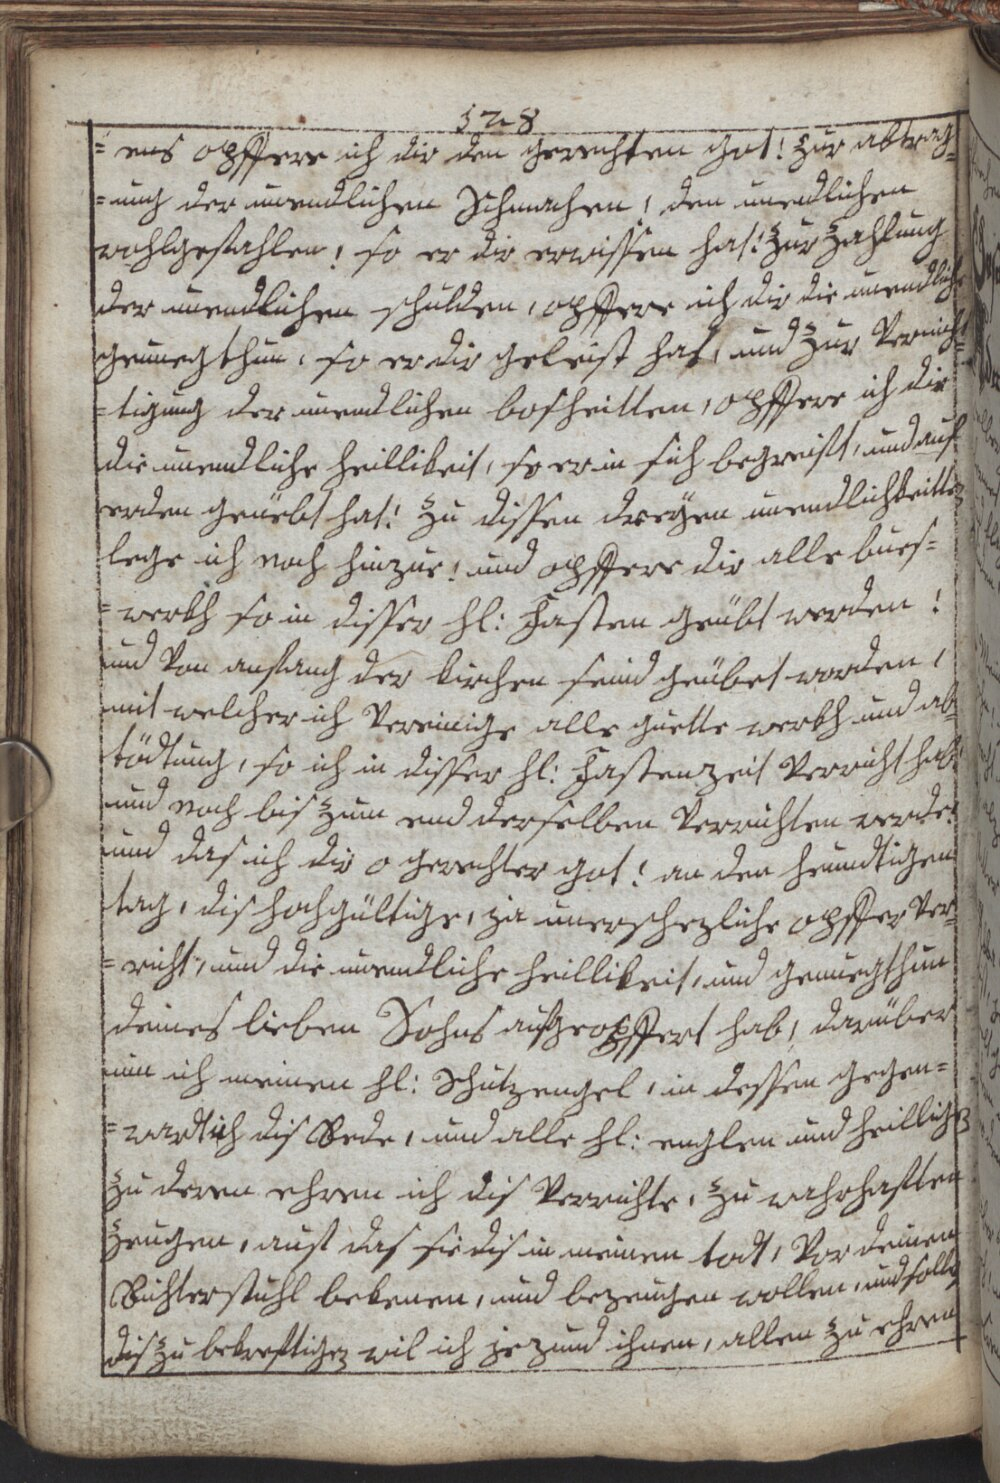 128
= ens opffere ich dir den gerechten got! zur abtrag=
= ung der unendlichen Schmachen! den unendlichen
wohlgefahlen! so er dir erwissen hat! zur zahlung
der unendlichen schulden, opffere ich dir die unendliche
genuegthun, so er dir geleist hat, und zur Vernich=
= tigung der unendlichen bosheitten, opffere ich dir
die unendliche heillikeit, so er in sich begreifft, und auf
erden geüebt hat! zu dissen dreÿen unendlichkeitten
lege ich noch hinzue! und opffere dir alle bues=
= werkh so in disser hl: Fasten geübt werden!
und Von anfang der kirchen seind geübet worden,
mit welcher ich Vereinige alle guette werkh und ab=
tödtung, so ich in disser hl: Fastenzeit Verricht hab
und noch bis zum end derselben Verrichten werde!
und das ich dir o gerechter got! an den heundtigen
tag, dis hochgültige, ja unerschezliche opffer Ver=
= richt, und die unendliche heillikeit, und genuegthun
deines lieben Sohns aufgeopffert hab, darüber
nim ich meinen hl: Schutzengel, in dessen gegen=
= wardt ich dis Rede, und alle hl: englen und heilligen
zu deren ehren ich dis Verrichte, zu wahrhafften
zeugen, auff das sie dis in meinen todt, Vor deinen
Richterstuhl bekenen, und bezeugen wollen, und solle
dis zu bekrefftigen wil ich jezund ihnen, allen zu ehren